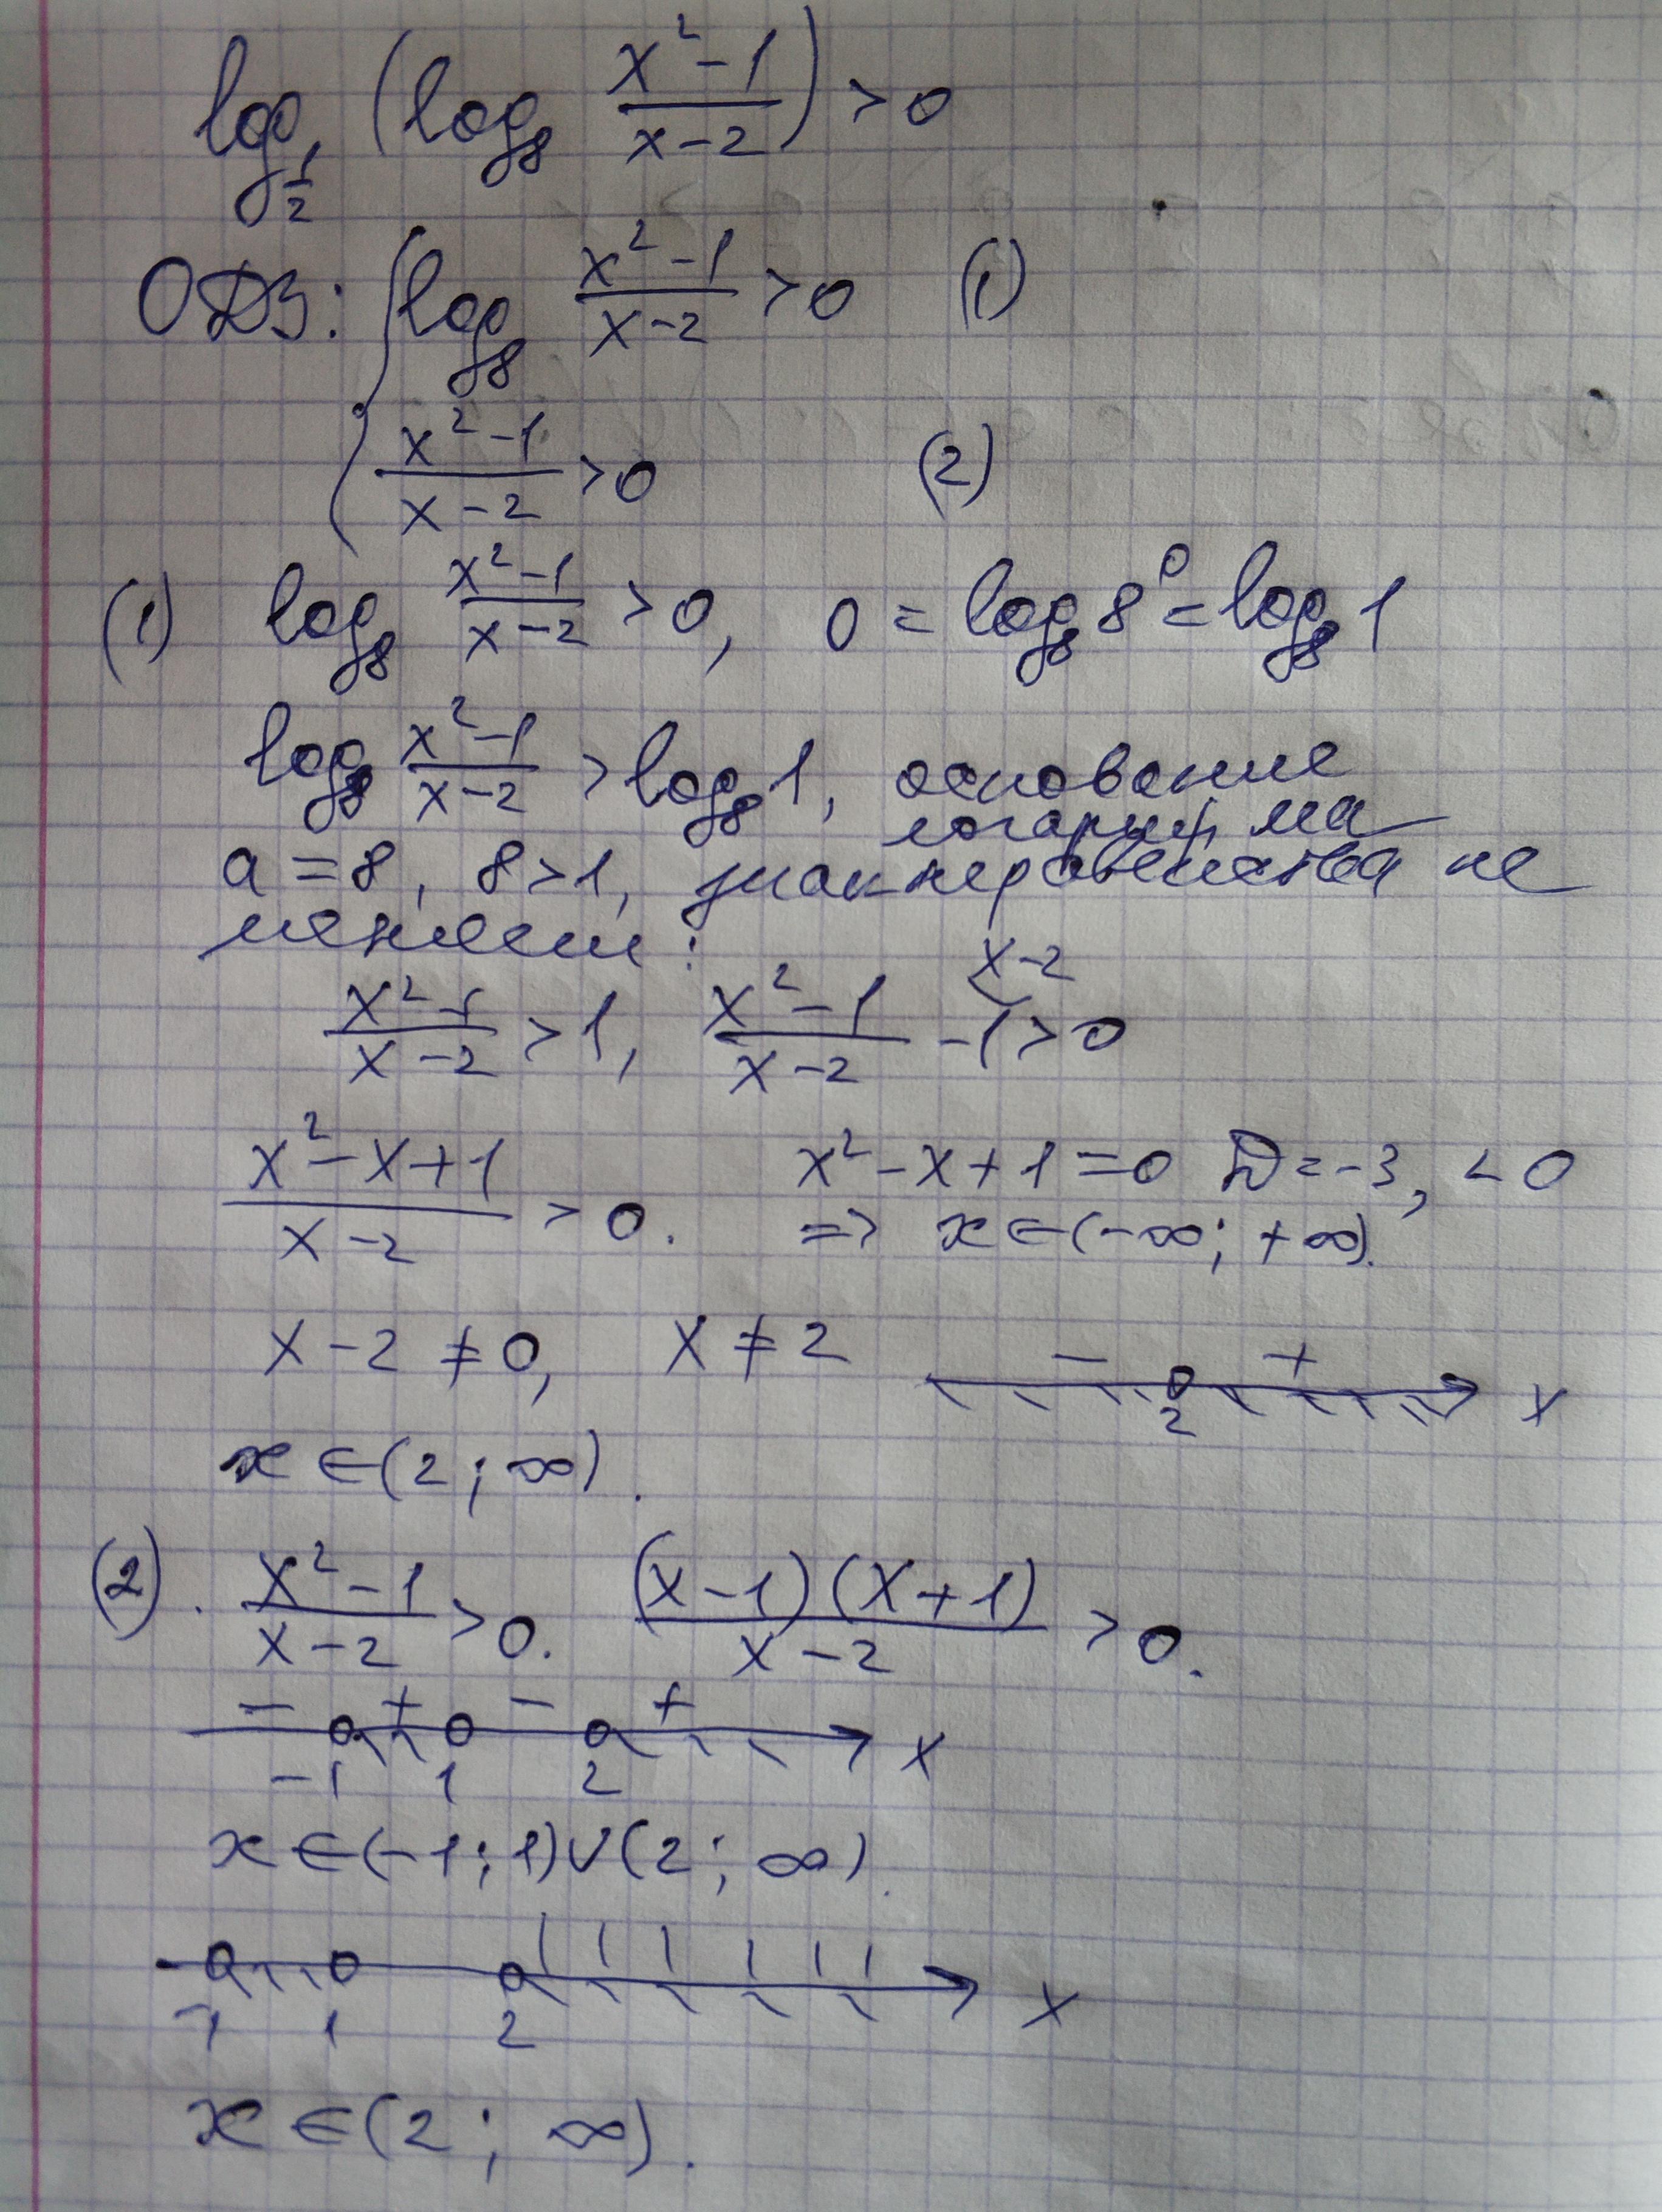 log_{1/2} (log_8 (x²-1)/(x-2)) > 0
ОДЗ: { log_8 (x²-1)/(x-2) > 0 (1)
(x²-1)/(x-2) > 0 (2)
(1) log_8 (x²-1)/(x-2) > 0, 0 = log_8 8⁰ = log_8 1
log_8 (x²-1)/(x-2) > log_8 1, основание
логарифма
a = 8, 8 > 1, знак неравенства не
меняем:
(x²-1)/(x-2) > 1, (x²-1)/(x-2) - 1 > 0
x-2
(x²-x+1)/(x-2) > 0. x²-x+1=0 D=-3, <0
=> x∈(-∞; +∞).
x-2 ≠ 0, x ≠ 2
- + 2 x
x∈(2; ∞).
(2). (x²-1)/(x-2) > 0. (x-1)(x+1)/(x-2) > 0.
- + - +
-1 1 2 x
x∈(-1; 1)∪(2; ∞).
-1 1 2 x
x∈(2; ∞).